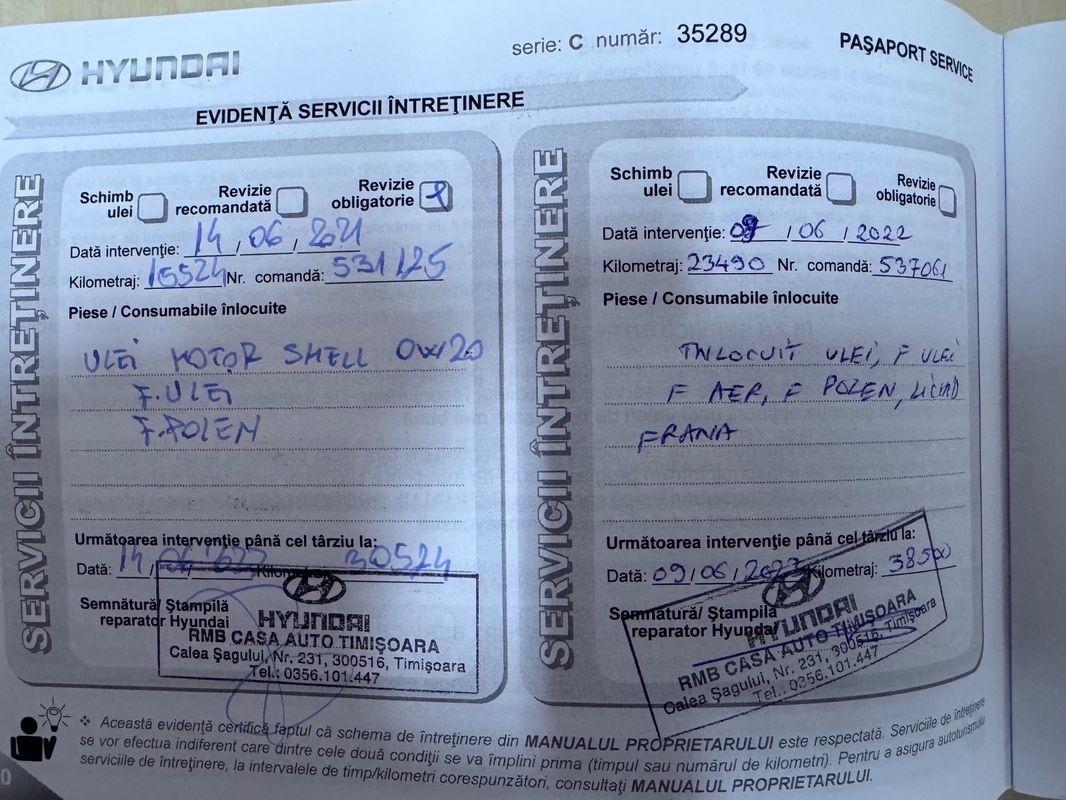 HYUNDAI
serie: C număr: 35289
PAŞAPORT SERVICE
EVIDENŢĂ SERVICII ÎNTREŢINERE
SERVICII ÎNTREŢINERE
Schimb ulei
Revizie recomandată
Revizie obligatorie
Dată intervenţie: 14 / 06 / 2021
Kilometraj: 15524 Nr. comandă: 531125
Piese / Consumabile înlocuite
ULEI MOTOR SHELL 0W20
F. ULEI
F. POLEN
Următoarea intervenţie până cel târziu la:
Dată: 14 / 06 / 2022 Kilometraj: 30524
Semnătură/ Ştampilă
reparator Hyundai
HYUNDAI
RMB CASA AUTO TIMIŞOARA
Calea Şagului, Nr. 231, 300516, Timişoara
Tel.: 0356.101.447
SERVICII ÎNTREŢINERE
Schimb ulei
Revizie recomandată
Revizie obligatorie
Dată intervenţie: 09 / 06 / 2022
Kilometraj: 23490 Nr. comandă: 537061
Piese / Consumabile înlocuite
INLOCUIT ULEI, F ULEI
F AER, F POLEN, LICHID
FRANA
Următoarea intervenţie până cel târziu la:
Dată: 09 / 06 / 2023 Kilometraj: 38500
Semnătură/ Ştampilă
reparator Hyundai
HYUNDAI
RMB CASA AUTO TIMIŞOARA
Calea Şagului, Nr. 231, 300516, Timişoara
Tel.: 0356.101.447
❖ Această evidenţă certifică faptul că schema de întreţinere din MANUALUL PROPRIETARULUI este respectată. Serviciile de întreţinere
se vor efectua indiferent care dintre cele două condiţii se va împlini prima (timpul sau numărul de kilometri). Pentru a asigura autoturismului
serviciile de întreţinere, la intervalele de timp/kilometri corespunzători, consultaţi MANUALUL PROPRIETARULUI.